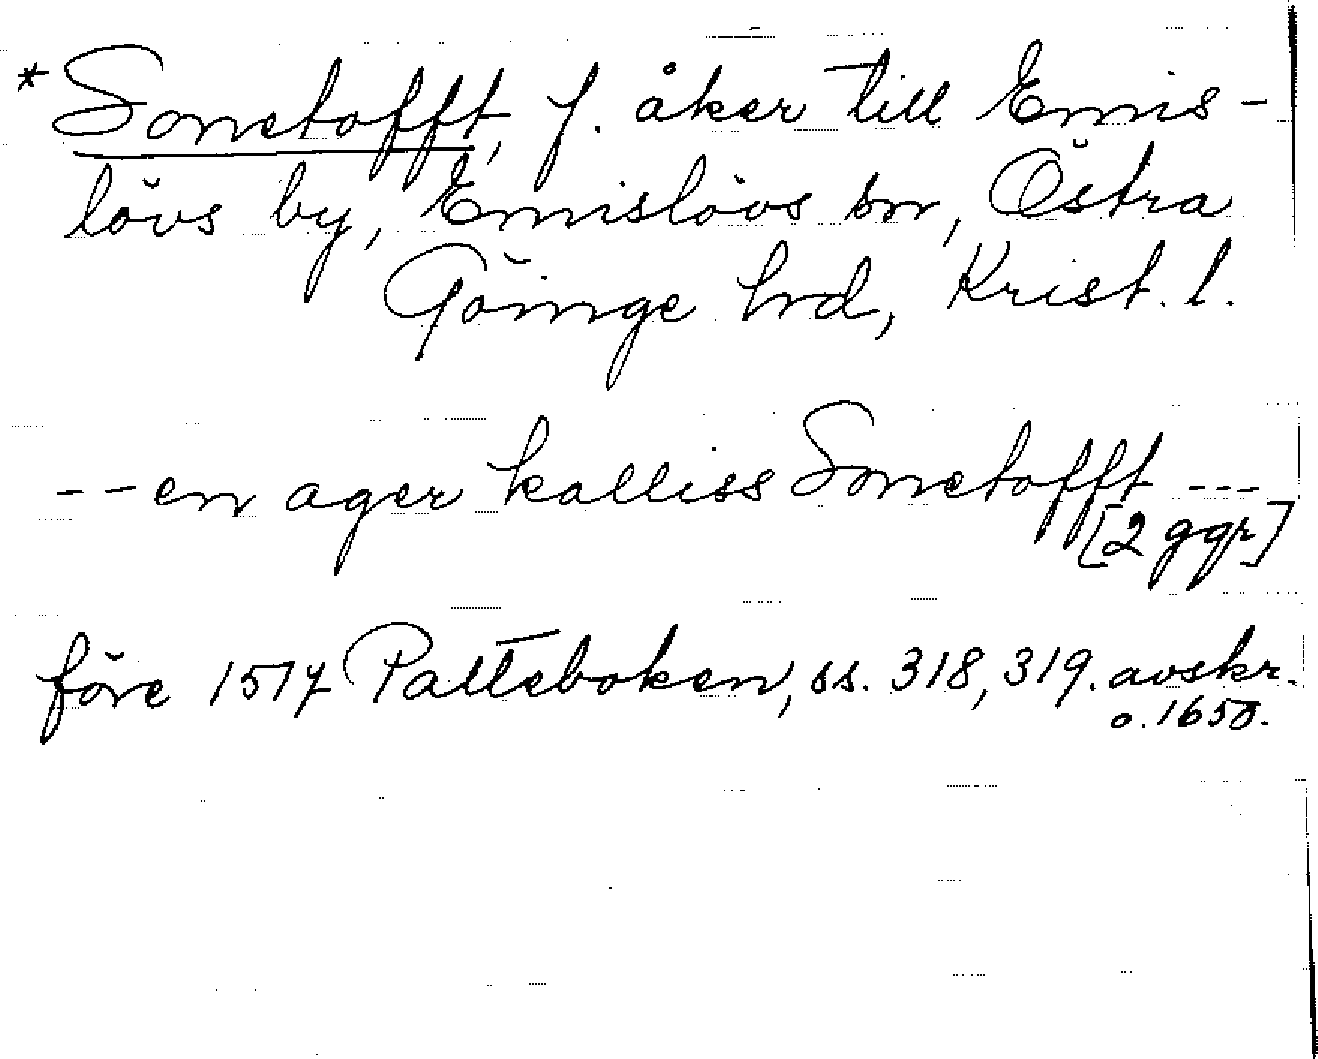 *Sonetofft, f. åker till Emis-
lövs by, Emislövs sn, Östra
Göinge hrd, Krist. l.
-- en ager kalliss Sonetofft ---
[2 ggr]
före 1517 Palteboken, ss. 318, 319. avskr.
o. 1650.